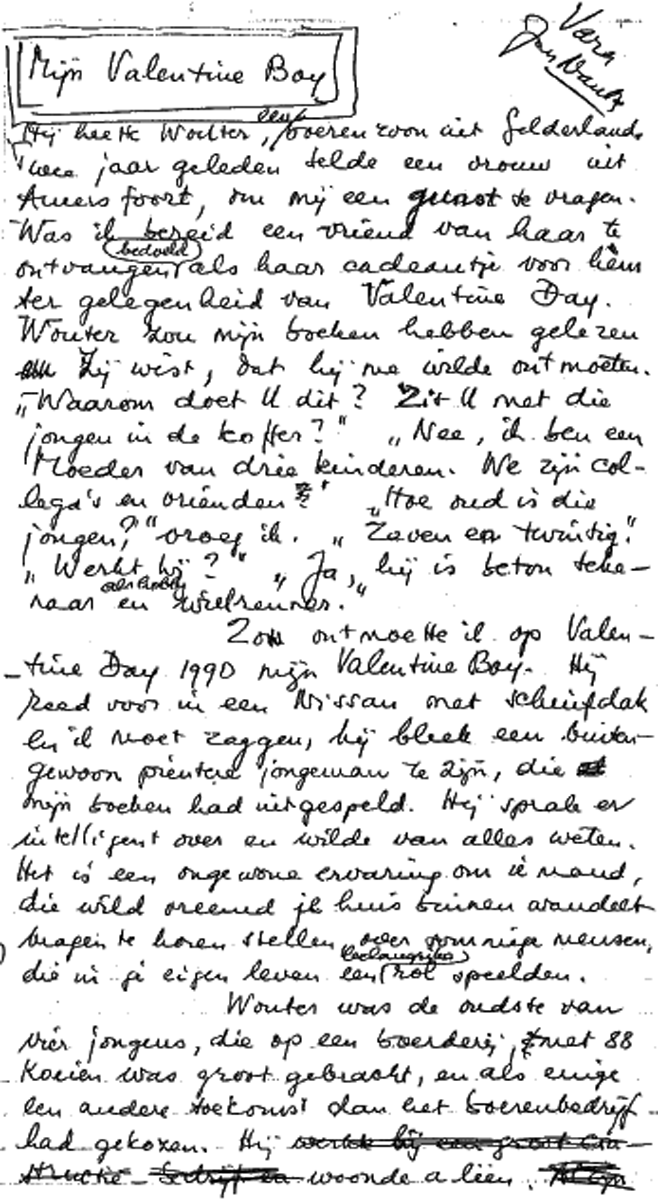 Vara
Mijn Valentine Boy
Hij heette Wouter, een boerenzoon uit Gelderland.
Twee jaar geleden belde een vrouw uit
Amersfoort, om mij een gunst te vragen.
Was ik bereid een vriend van haar te
ontvangen bedoeld als haar cadeautje voor hem
ter gelegenheid van Valentine Day.
Wouter zou mijn boeken hebben gelezen
Zij wist, dat hij me wilde ontmoeten.
„Waarom doet U dit? Zit U met die
jongen in de koffer?" „Nee, ik ben een
Moeder van drie kinderen. We zijn col-
lega's en vrienden." „Hoe oud is die
jongen?," vroeg ik. „Zeven en twintig."
„Werkt hij?" „Ja," „hij is beton teke-
naar en als hobby wielrenner.
Zo ontmoette ik op Valen-
-tine Day 1990 mijn Valentine Boy. Hij
reed voor in een Nissan met schuifdak
En ik moet zeggen, hij bleek een buiten-
gewoon pientere jongeman te zijn, die
mijn boeken had uitgespeld. Hij sprak er
intelligent over en wilde van alles weten.
Het is een ongewone ervaring om iemand,
die wild vreemd je huis binnen wandelt
vragen te horen stellen over sommige mensen,
die in je eigen leven een belangrijke rol speelden.
Wouter was de oudste van
vier jongens, die op een boerderij, met 88
koeien was groot gebracht, en als enige
een andere toekomst dan het boerenbedrijf
had gekozen. Hij werkte bij een groot Con-
structie-bedrijf en woonde alleen.